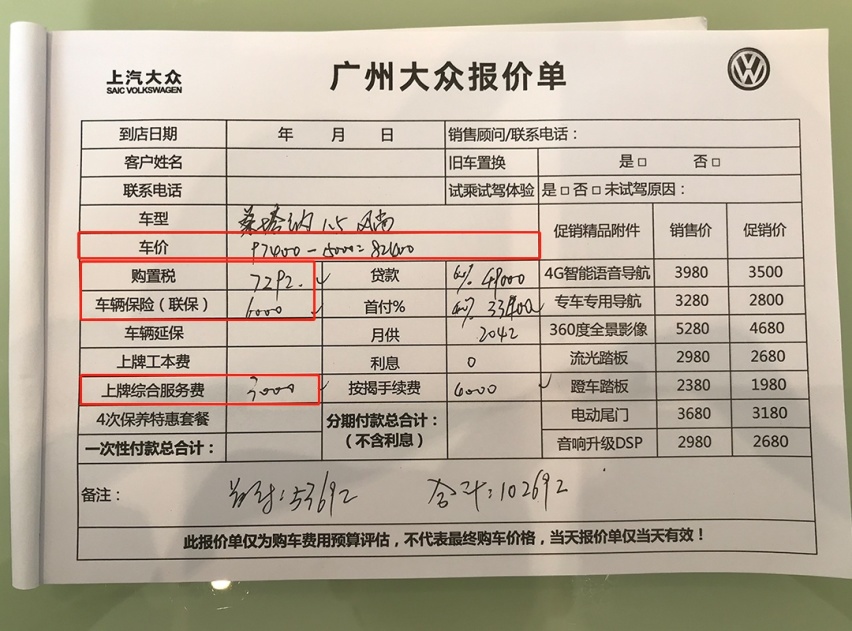 上汽大众
SAIC VOLKSWAGEN
广州大众报价单
到店日期 年 月 日 销售顾问/联系电话：
客户姓名 旧车置换 是□ 否□
联系电话 试乘试驾体验 是□否□未试驾原因：
车型 桑塔纳 1.5 风尚 促销精品附件 销售价 促销价
车价 97400-15000=82400
购置税 7292. 贷款 60% 49000 4G智能语音导航 3980 3500
车辆保险（联保） 6000 首付% 33400 专车专用导航 3280 2800
车辆延保 月供 2042 360度全景影像 5280 4680
上牌工本费 利息 0 流光踏板 2980 2680
上牌综合服务费 3000 按揭手续费 6000 蹬车踏板 2380 1980
4次保养特惠套餐 分期付款总合计：（不含利息） 电动尾门 3680 3180
一次性付款总合计： 音响升级DSP 2980 2680
备注： 首付：53692 合计：102692
此报价单仅为购车费用预算评估，不代表最终购车价格，当天报价单仅当天有效！